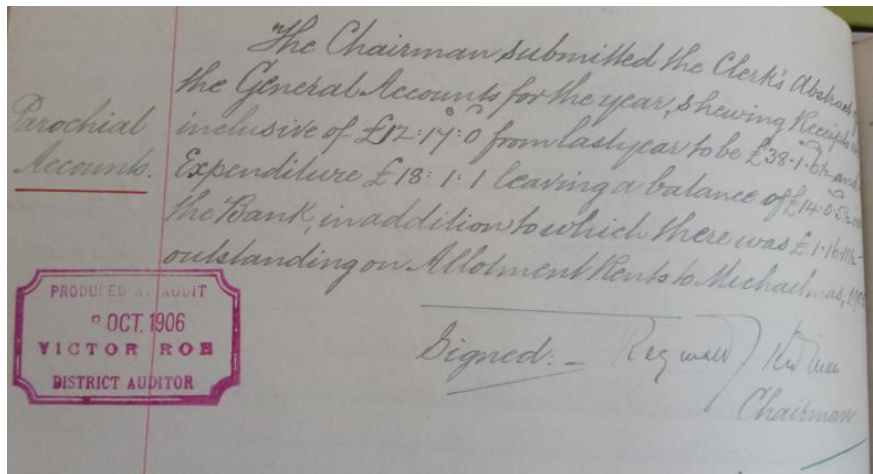 The Chairman submitted the Clerk's Abstract of
the General Accounts for the year, shewing Receipts
Parochial inclusive of £12:17:0 from last year to be £38·1·6½ and
Accounts. Expenditure £18:1:1 leaving a balance of £14·0·5½
the Bank, in addition to which there was £1·16·11½
outstanding on Allotment Rents to Michaelmas,
PRODUCED AT AUDIT
OCT. 1906
VICTOR ROE
DISTRICT AUDITOR
Signed:-
Chairman